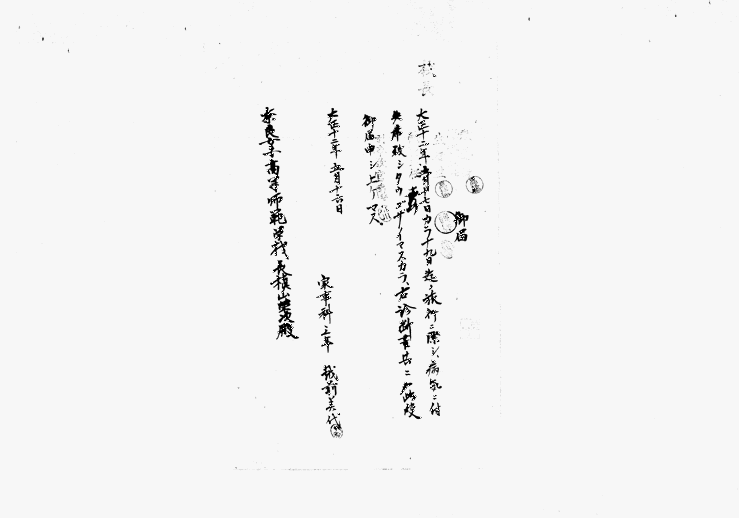 御届
大正十二年五月十七日カラ十九日迄ノ旅行ニ際シ、病気ニ付
欠席致シタウゴザイマスカラ、右診断書共ニ
御届申シ上ゲマス。
大正十二年五月十六日
家事科三年 美代
奈良女子高等師範学校長槇山栄次殿
校長